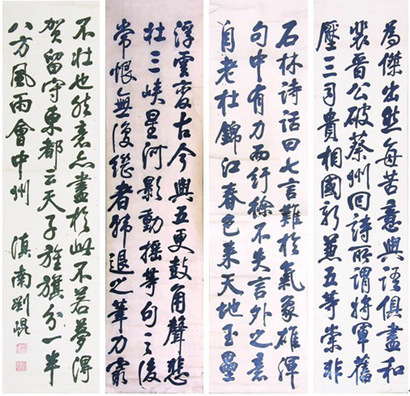 石林詩話曰七言難於氣象雄渾
句中有力而紆徐不失言外之意
自老杜錦江春色来天地玉壘
浮雲變古今與五更鼓角聲悲
壯三峽星河影動搖等句之後
常恨無復繼者韓退之筆力最
為傑出然每苦意與語俱盡和
裴晉公破蔡州回詩所謂將軍舊
壓三司貴相國新兼五等崇非
不壯也然意亦盡於此不若夢得
賀留守東都云天子旌旗分一半
八方風雨會中州
滇南劉崐